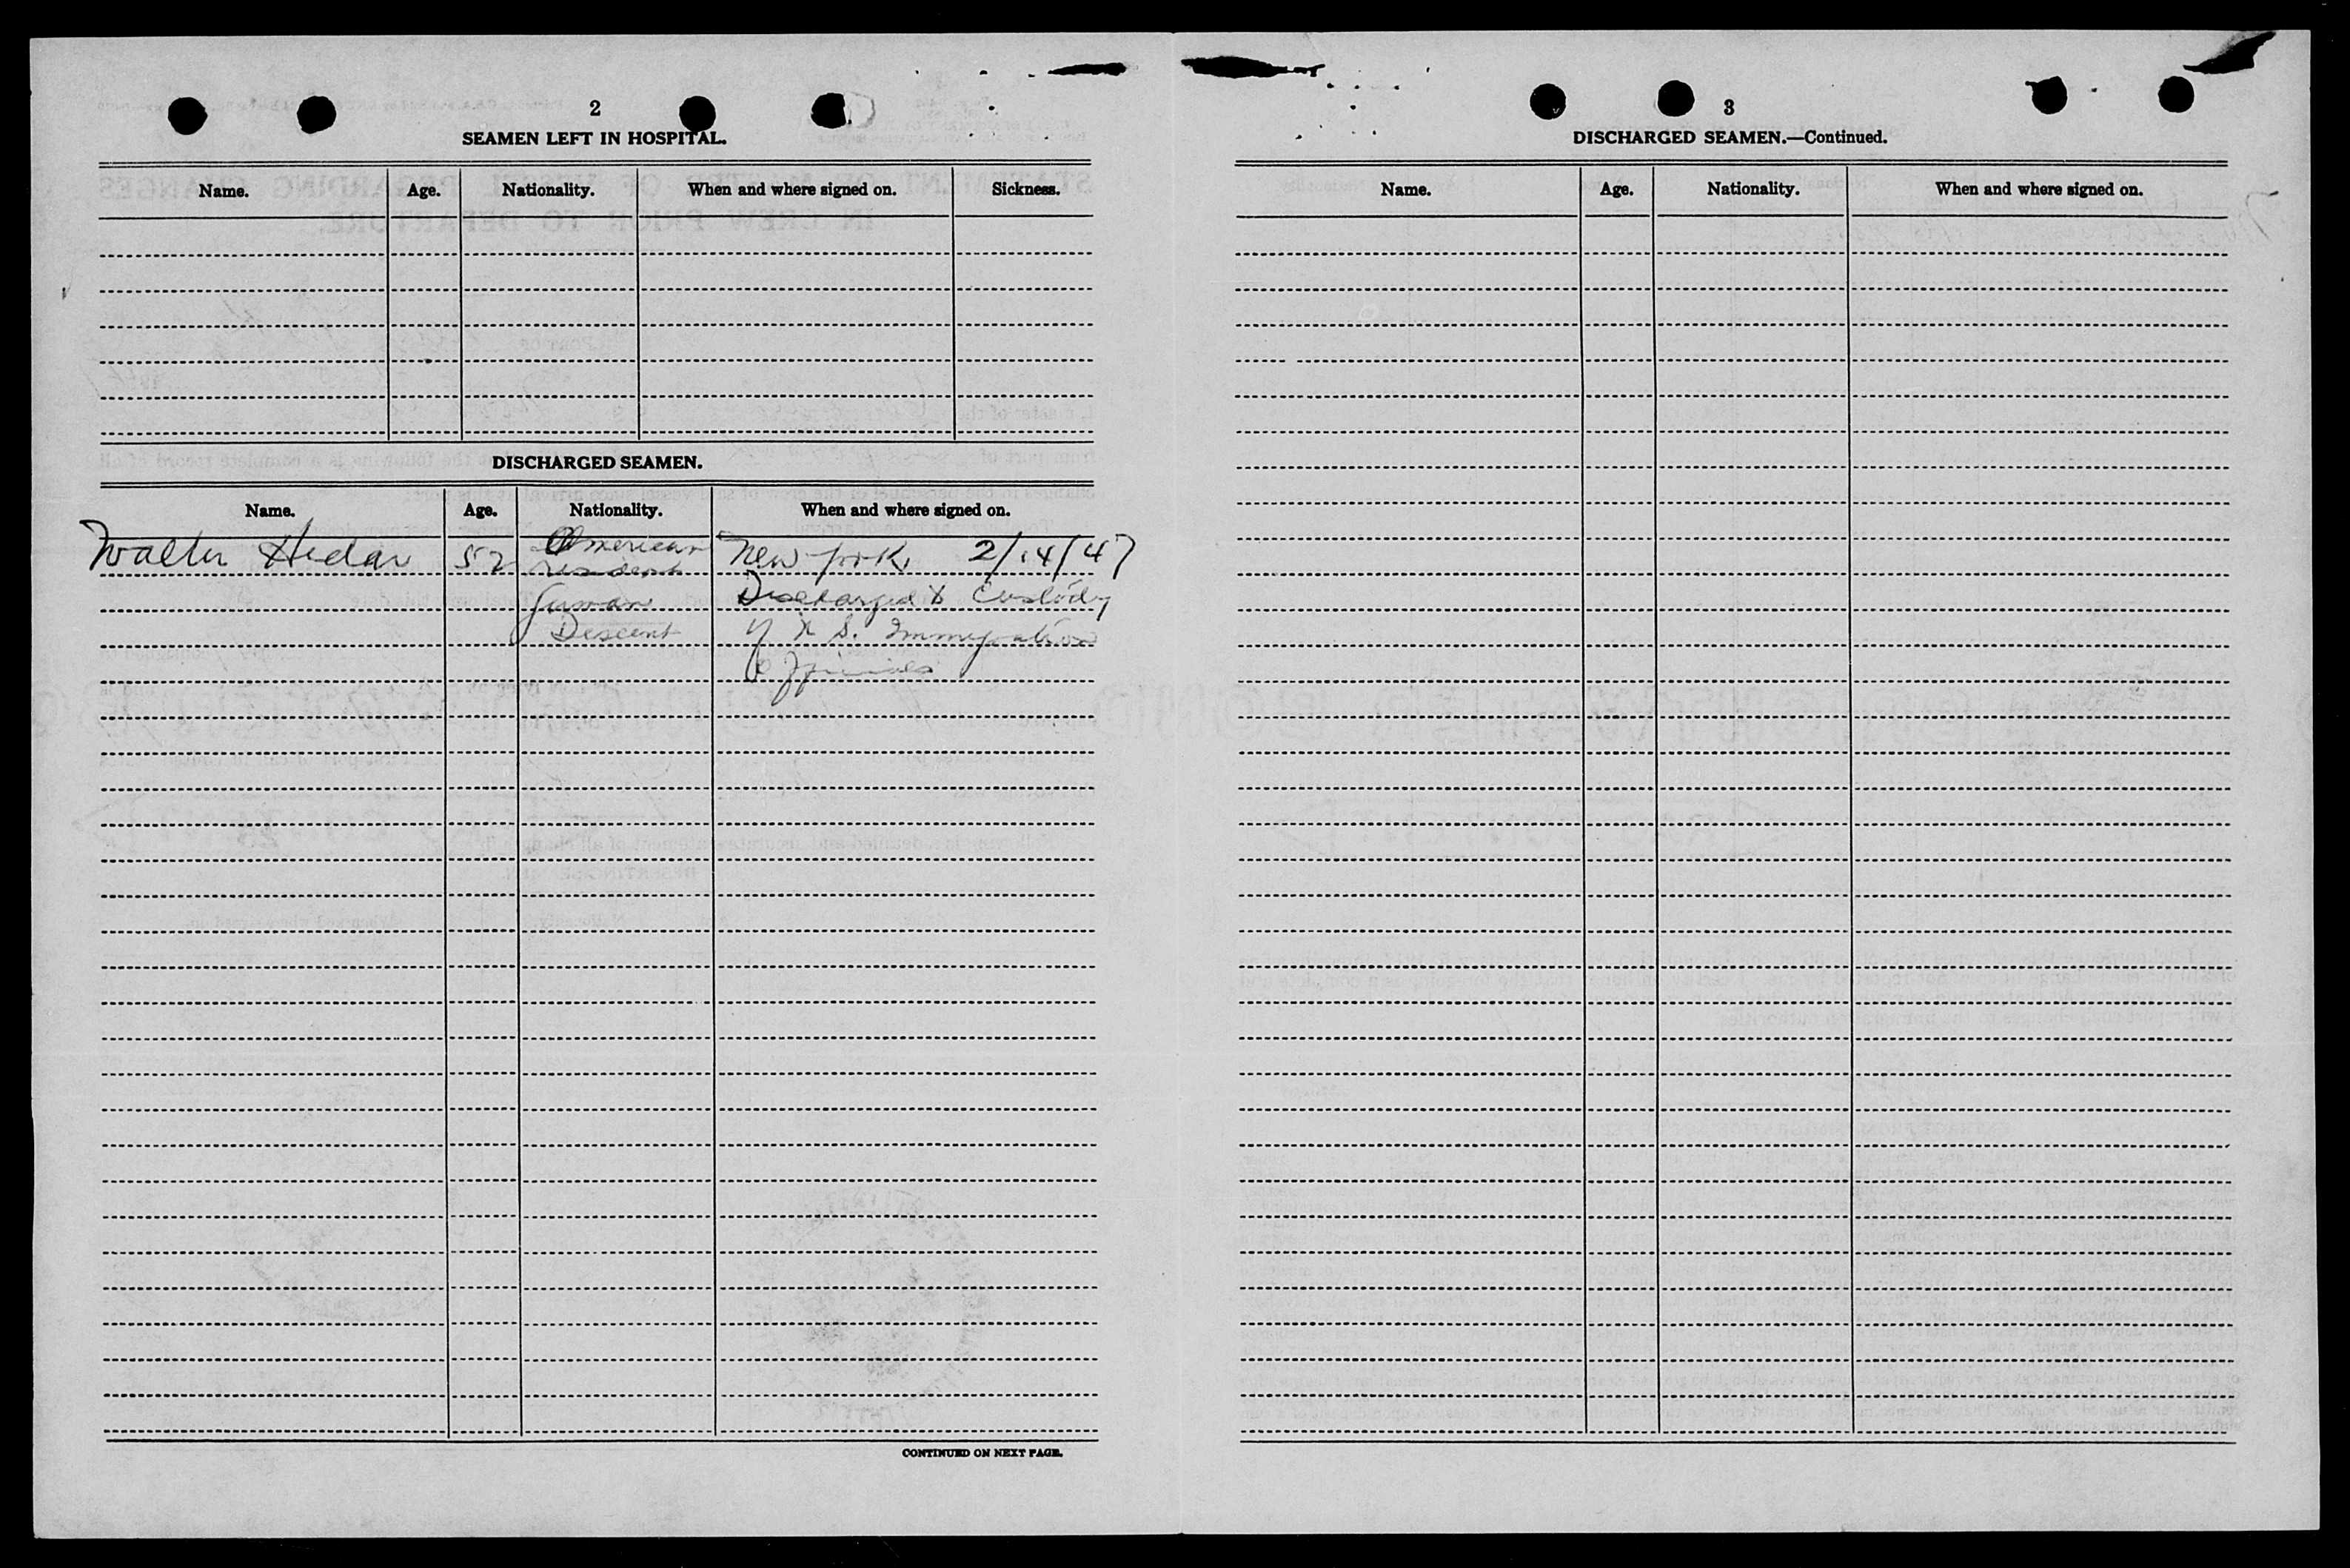 2
SEAMEN LEFT IN HOSPITAL.
Name. Age. Nationality. When and where signed on. Sickness.
DISCHARGED SEAMEN.
Name. Age. Nationality. When and where signed on.
Walter Hedar 52 American New York, 2/14/47
resident
German Discharged to Custody
Descent of U.S. Immigration
Officials
CONTINUED ON NEXT PAGE.
3
DISCHARGED SEAMEN.—Continued.
Name. Age. Nationality. When and where signed on.